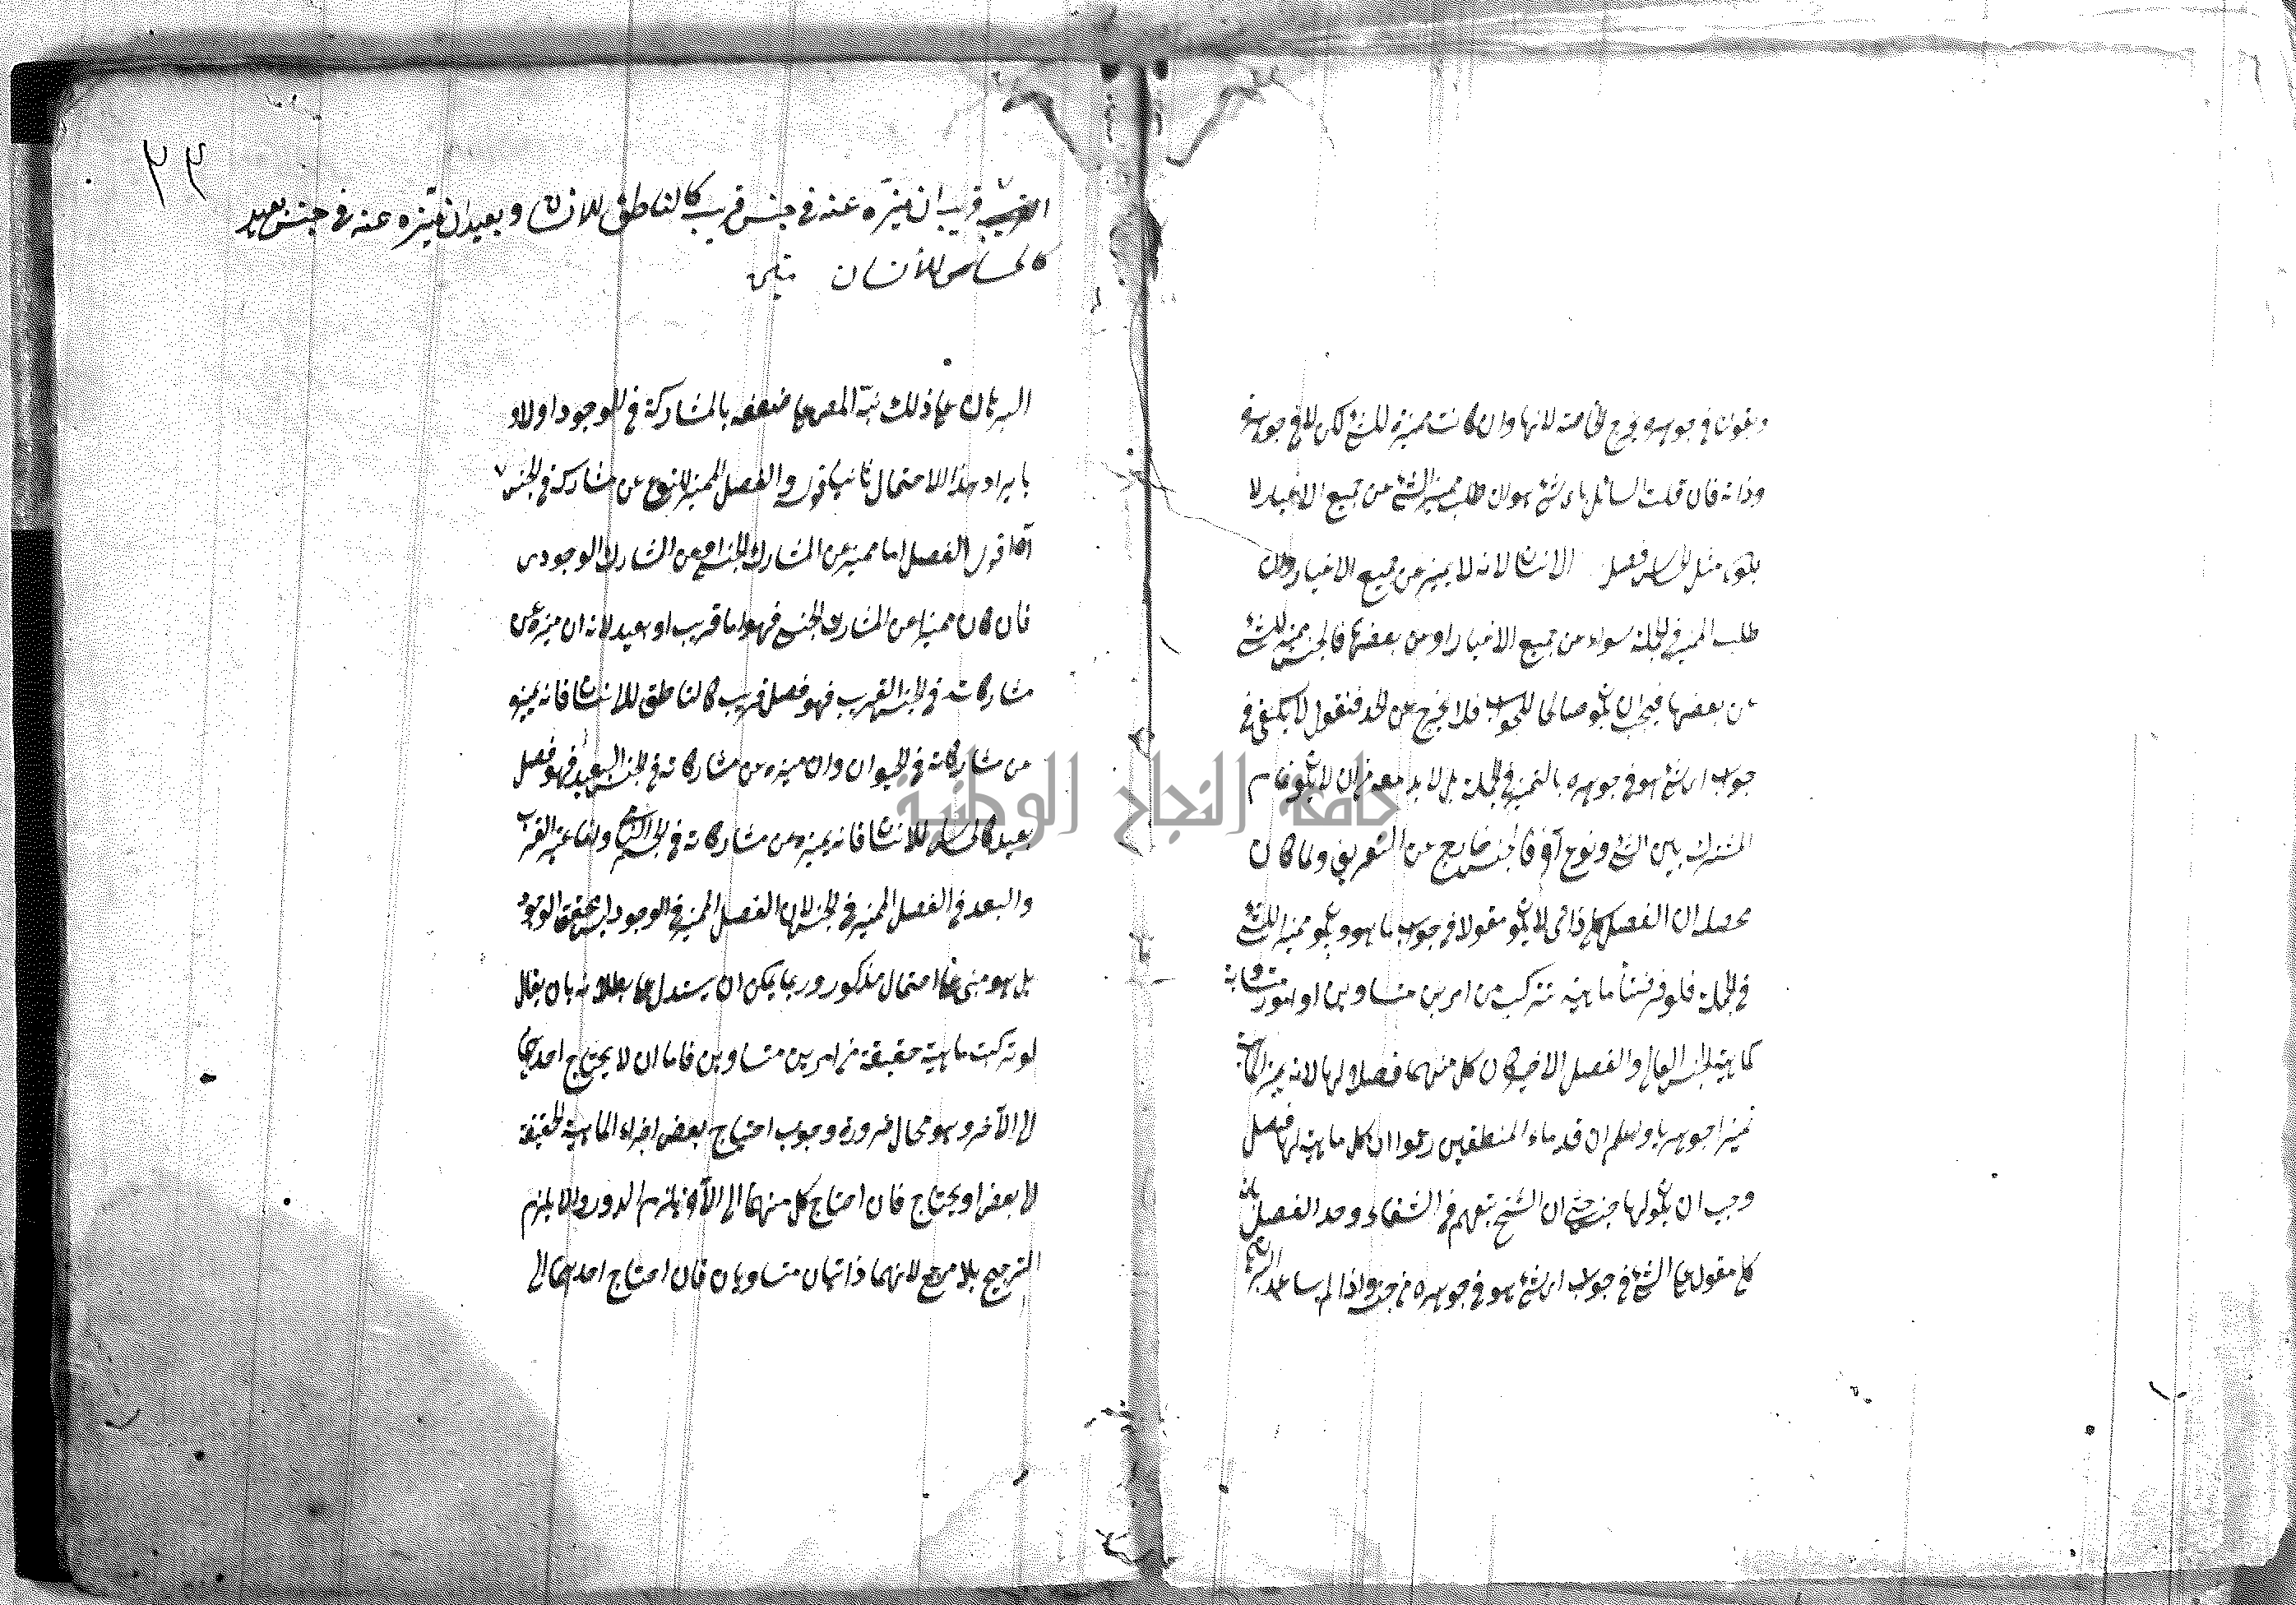 وبقولنا في جوهره يخرج الخاصة لانها وان كانت مميزة للشئ لكن لا في جوهره
وذاته فان قلت السائل باى شئ هو ان طلب مميز الشئ من جميع الاغيار لا
يكون مثل الحساس فصل الانسان لانه لا يميز عن جميع الاغيار وان
طلب المميز في الجملة سواء من جميع الاغيار او من بعضها فالجنس مميز للشئ
عن بعضها فيجب ان يكون صالحا للجواب فلا يخرج عن الحد فنقول لا يكفى في
جواب اى شئ هو في جوهره بالتميز في الجملة بل لا بد معه من ان لا يكون تمام
المشترك بين الشئ ونوع آخر فالجنس خارج من التعريف ولما كان
محصله ان الفصل كلي ذاتى لا يكون مقولا في جواب ما هو ويكون مميزا للشئ
في الجملة فلو فرضنا ماهية تتركب من امرين متساويين او امور متساوية
كماهية الجنس العالى والفصل الاخير كان كل منهما فصلا لها لانه يميز الماهية
تميزا جوهريا واعلم ان قدماء المنطقيين زعموا ان كل ماهية لها فصل
وجب ان يكون لها جنس حتى ان الشيخ تبعهم في الشفاء وحد الفصل بانه
كلي مقول على الشئ في جواب اى شئ هو في جوهره من جنسه واذا لم يساعد البرهان
٣٣
قريب ان ميزه عنه في جنس قريب كالناطق للانسان وبعيد ان ميزه عنه في جنس بعيد
كالحساس للأنسان متن
البرهان على ذلك نبه المص على ضعفه بالمشاركة في الوجود اولا و
بايراد هذا الاحتمال ثانيا قوله والفصل المميز للنوع عن مشاركه في الجنس
آه اقول الفصل اما مميز عن المشارك الجنسى او عن المشارك الوجودى
فان كان مميزا من المشارك الجنسى فهو اما قريب او بعيد لانه ان ميزه عن
مشاركاته في الجنس القريب فهو فصل قريب كالناطق للانسان فانه يميزه
من مشاركاته في الحيوان وان ميزه من مشاركاته في الجنس البعيد فهو فصل
بعيد كالحساس للانسان فانه يميزه من مشاركاته في الجسم النامى وانما اعتبر القرب
والبعد في الفصل المميز في الجنس لان الفصل المميز في الوجود ليس متحقق الوجود
بل هو مبنى على احتمال مذكور وربما يمكن ان يستدل على بطلانه بان يقال
لو تركبت ماهية حقيقة من امرين متساويين فاما ان لا يحتاج احدهما
الى الآخر وهو محال ضرورة وجوب احتياج بعض اجزاء الماهية الحقيقة
الى بعض او يحتاج فان احتاج كل منهما الى الآخر يلزم الدور والا يلزم
الترجيح بلا مرجح لانهما ذاتيان متساويان فان احتاج احدهما الى